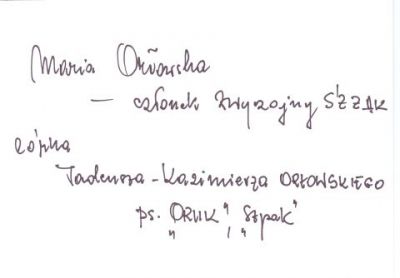 Maria Orłowska
— członek zwyczajny ŚŻŻAK
córka
Tadeusza-Kazimierza ORŁOWSKIEGO
ps. "ORLIK", "Szpak"